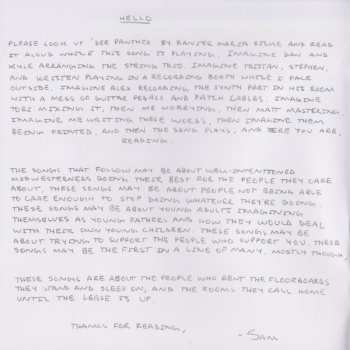 HELLO
PLEASE LOOK UP 'DER PANTHER' BY RAINER MARIA RILKE AND READ
IT ALOUD WHILE THIS SONG IS PLAYING. IMAGINE DAN AND
KYLE ARRANGING THE STRING TRIO. IMAGINE TRISTAN, STEPHEN,
AND KRISTEN PLAYING IN A RECORDING BOOTH WHILE I PACE
OUTSIDE. IMAGINE ALEX RECORDING THE SYNTH PART IN HIS ROOM
WITH A MESS OF GUITAR PEDALS AND PATCH CABLES. IMAGINE
TORI MIXING IT, THEN ME WORRYING, THEN MATT MASTERING.
IMAGINE ME WRITING THESE WORDS, THEN IMAGINE THEM
BEING PRINTED, AND THEN THE SONG PLAYS, AND HERE YOU ARE,
READING.
THE SONGS THAT FOLLOW MAY BE ABOUT WELL-INTENTIONED
MIDWESTERNERS DOING THEIR BEST FOR THE PEOPLE THEY CARE
ABOUT, THESE SONGS MAY BE ABOUT PEOPLE NOT BEING ABLE
TO CARE ENOUGH TO STOP DOING WHATEVER THEY'RE DOING.
THESE SONGS MAY BE ABOUT YOUNG ADULTS IMAGINING
THEMSELVES AS YOUNG FATHERS AND HOW THEY WOULD DEAL
WITH THEIR OWN YOUNG CHILDREN. THESE SONGS MAY BE
ABOUT TRYING TO SUPPORT THE PEOPLE WHO SUPPORT YOU. THESE
SONGS MAY BE THE FIRST IN A LINE OF MANY. MOSTLY THOUGH,
THESE SONGS ARE ABOUT THE PEOPLE WHO RENT THE FLOORBOARDS
THEY STAND AND SLEEP ON, AND THE ROOMS THEY CALL HOME
UNTIL THE LEASE IS UP.
THANKS FOR READING,
-SAM